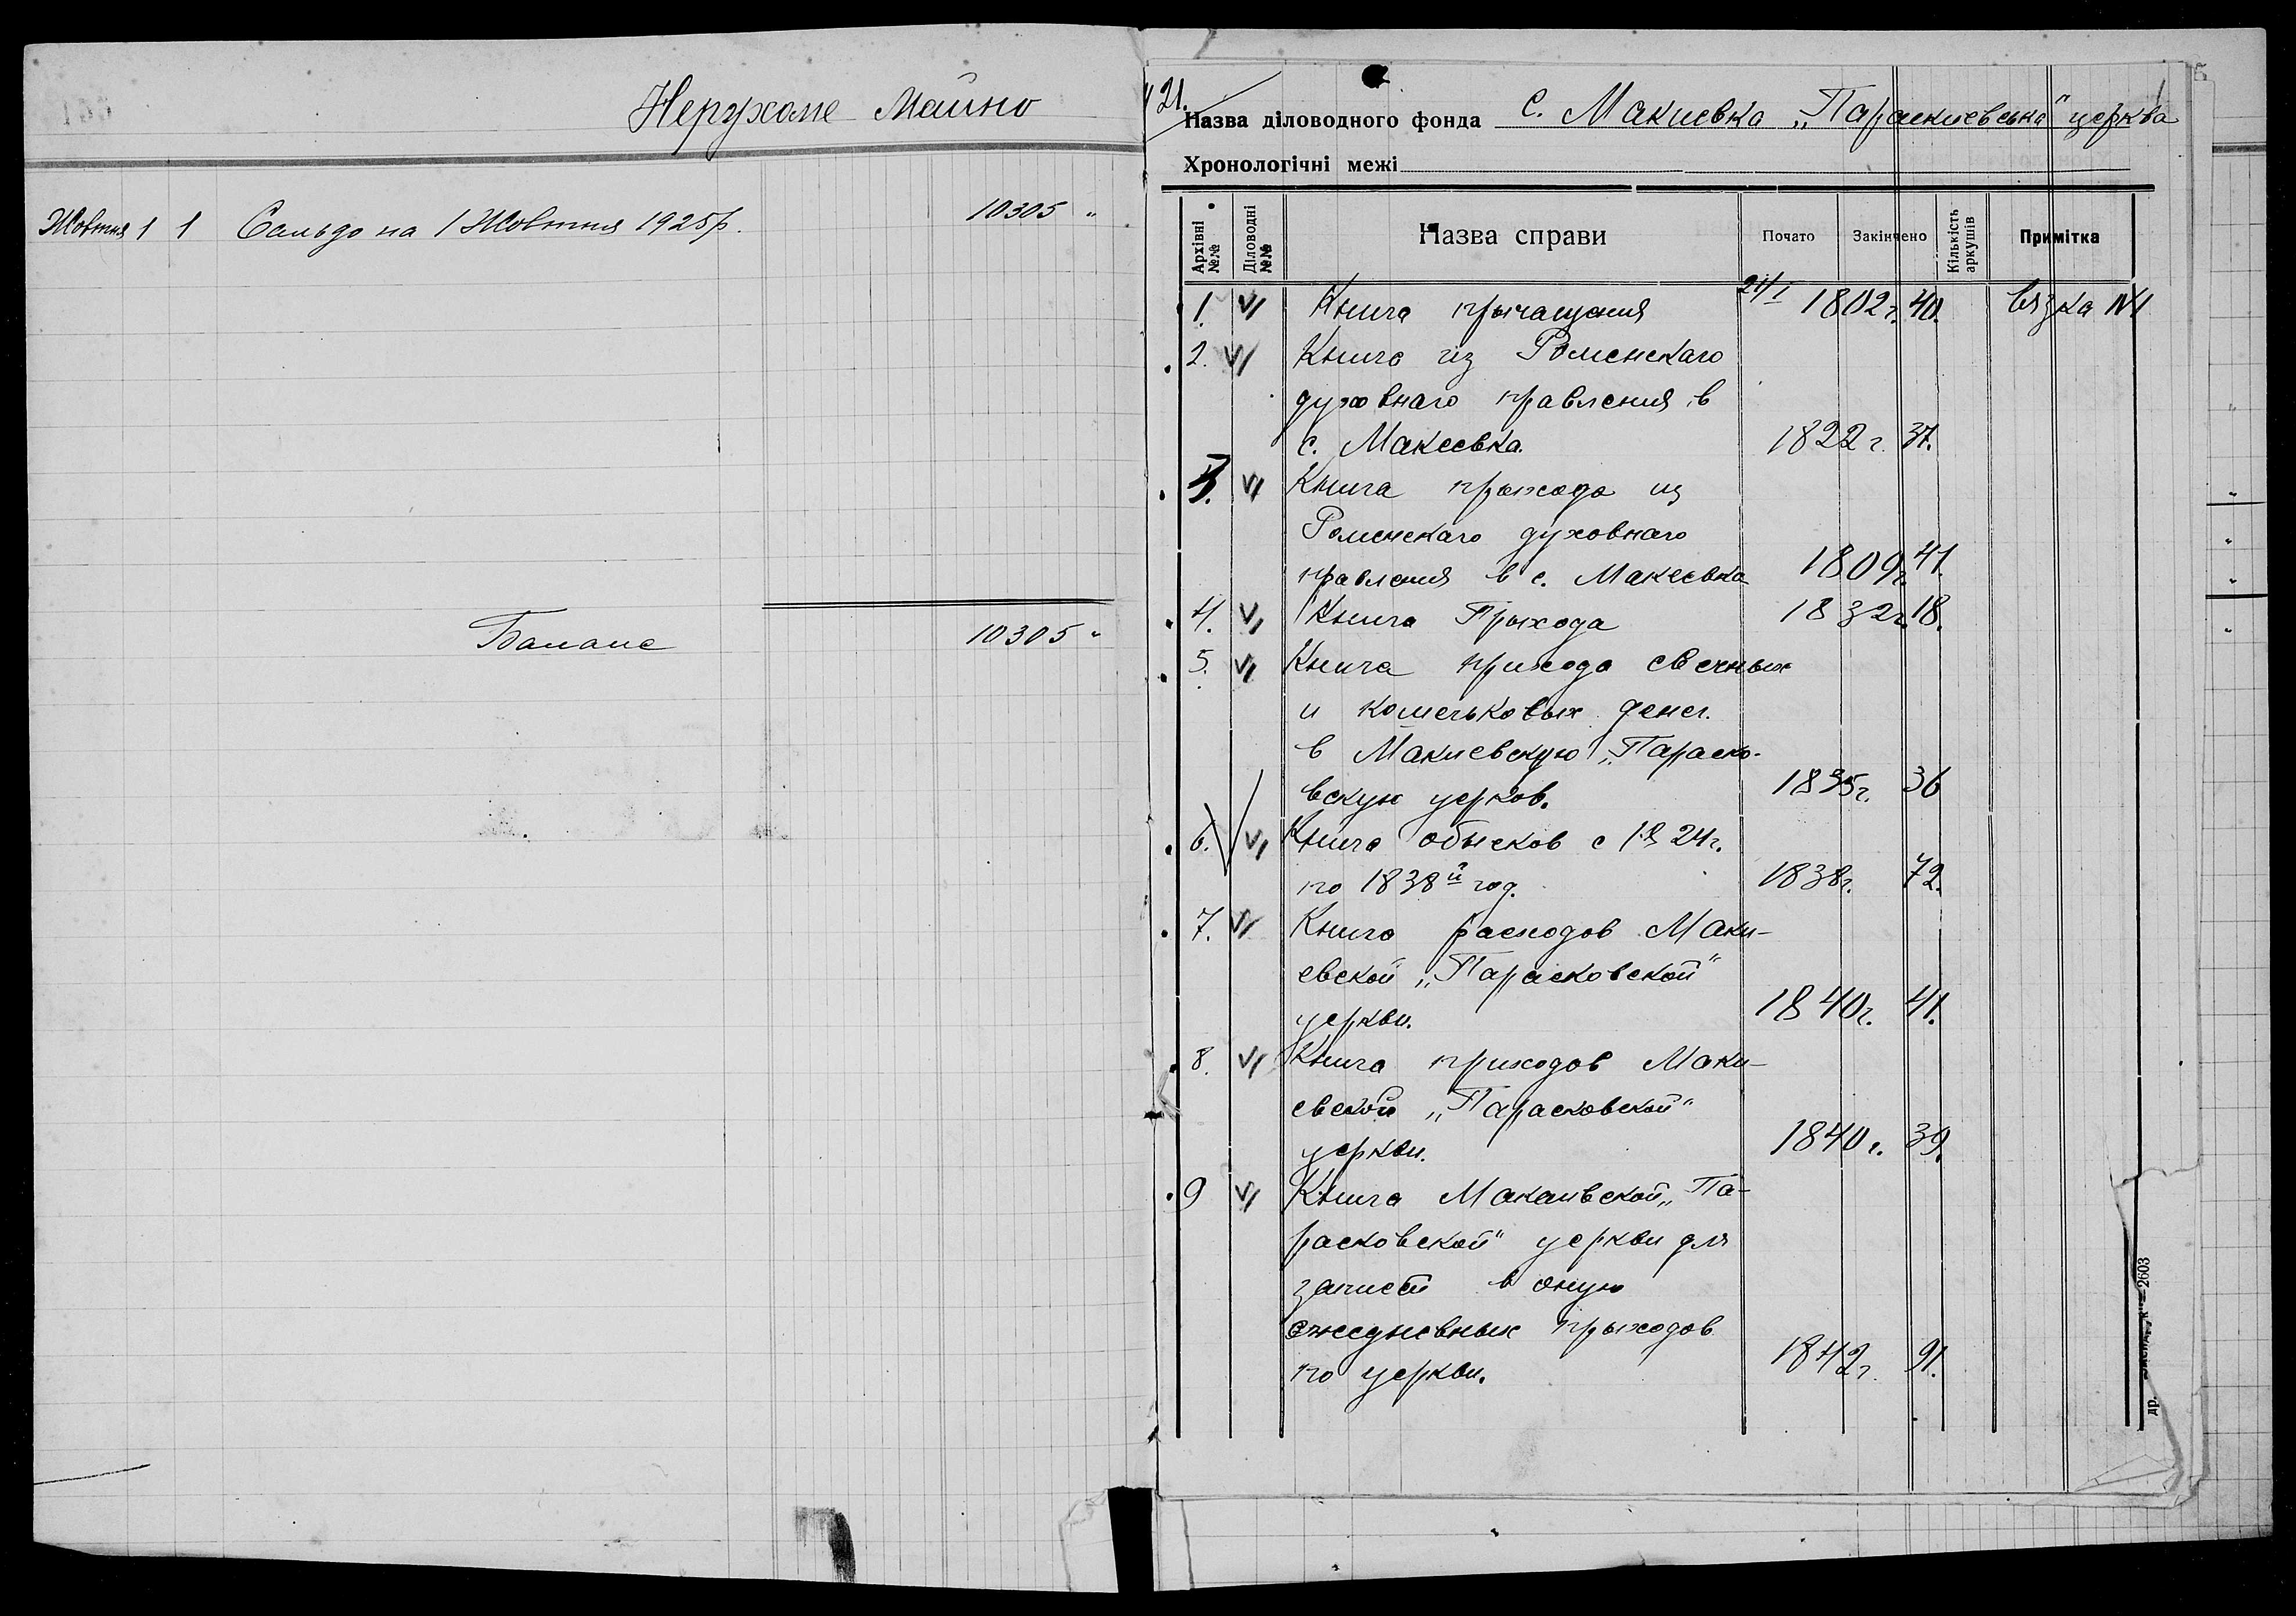 Нерухоме Майно
Жовтня 1 1 Сальдо на 1 Жовтня 1925р. 10305 "
Баланс 10305 "
421.
Назва діловодного фонда С. Макиевка „Параскиевська" церква
Хронологічні межі
Архівні №№ Діловодні №№ Назва справи Почато Закінчено Кількість аркушів Примітка
1. VI Книга прычащения 21/I 1802г. 40. Вязка №1
2. VI Книга из Роменскаго
духовнаго правления в
с. Макеевка. 1822 г. 37.
3. VI Книга прыхода из
Роменскаго духовнаго
правления в с. Макеевка 1809г. 41.
4. VI Книга Прыхода 1832г. 18.
5. VI Книга прихода свечных
и кошельковых денег.
в Макиевскую „Параско-
вскую церков. 1835г. 36
6. VI Книга обысков с 1824г.
по 1838й год. 1838г. 72.
7. VI Книга расходов Маки-
евской „Парасковской"
церкви. 1840г. 41.
8. VI Книга приходов Маки-
евской „Парасковской"
церкви. 1840г. 39.
9 VI Книга Макаивской „Па-
расковской" церкви для
записи в оную
ежедневных прыходов
по церкви. 1842г. 91.
др. 2603